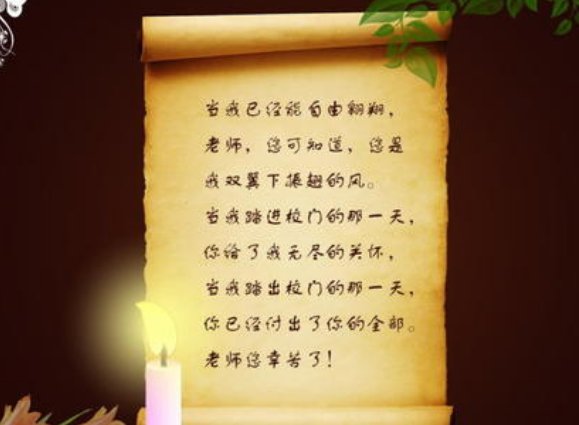 当我已经能自由翱翔，
老师，您可知道，您是
我双翼下振翅的风。
当我踏进校门的那一天，
你给了我无尽的关怀，
当我踏出校门的那一天，
你已经付出了你的全部。
老师您幸苦了！